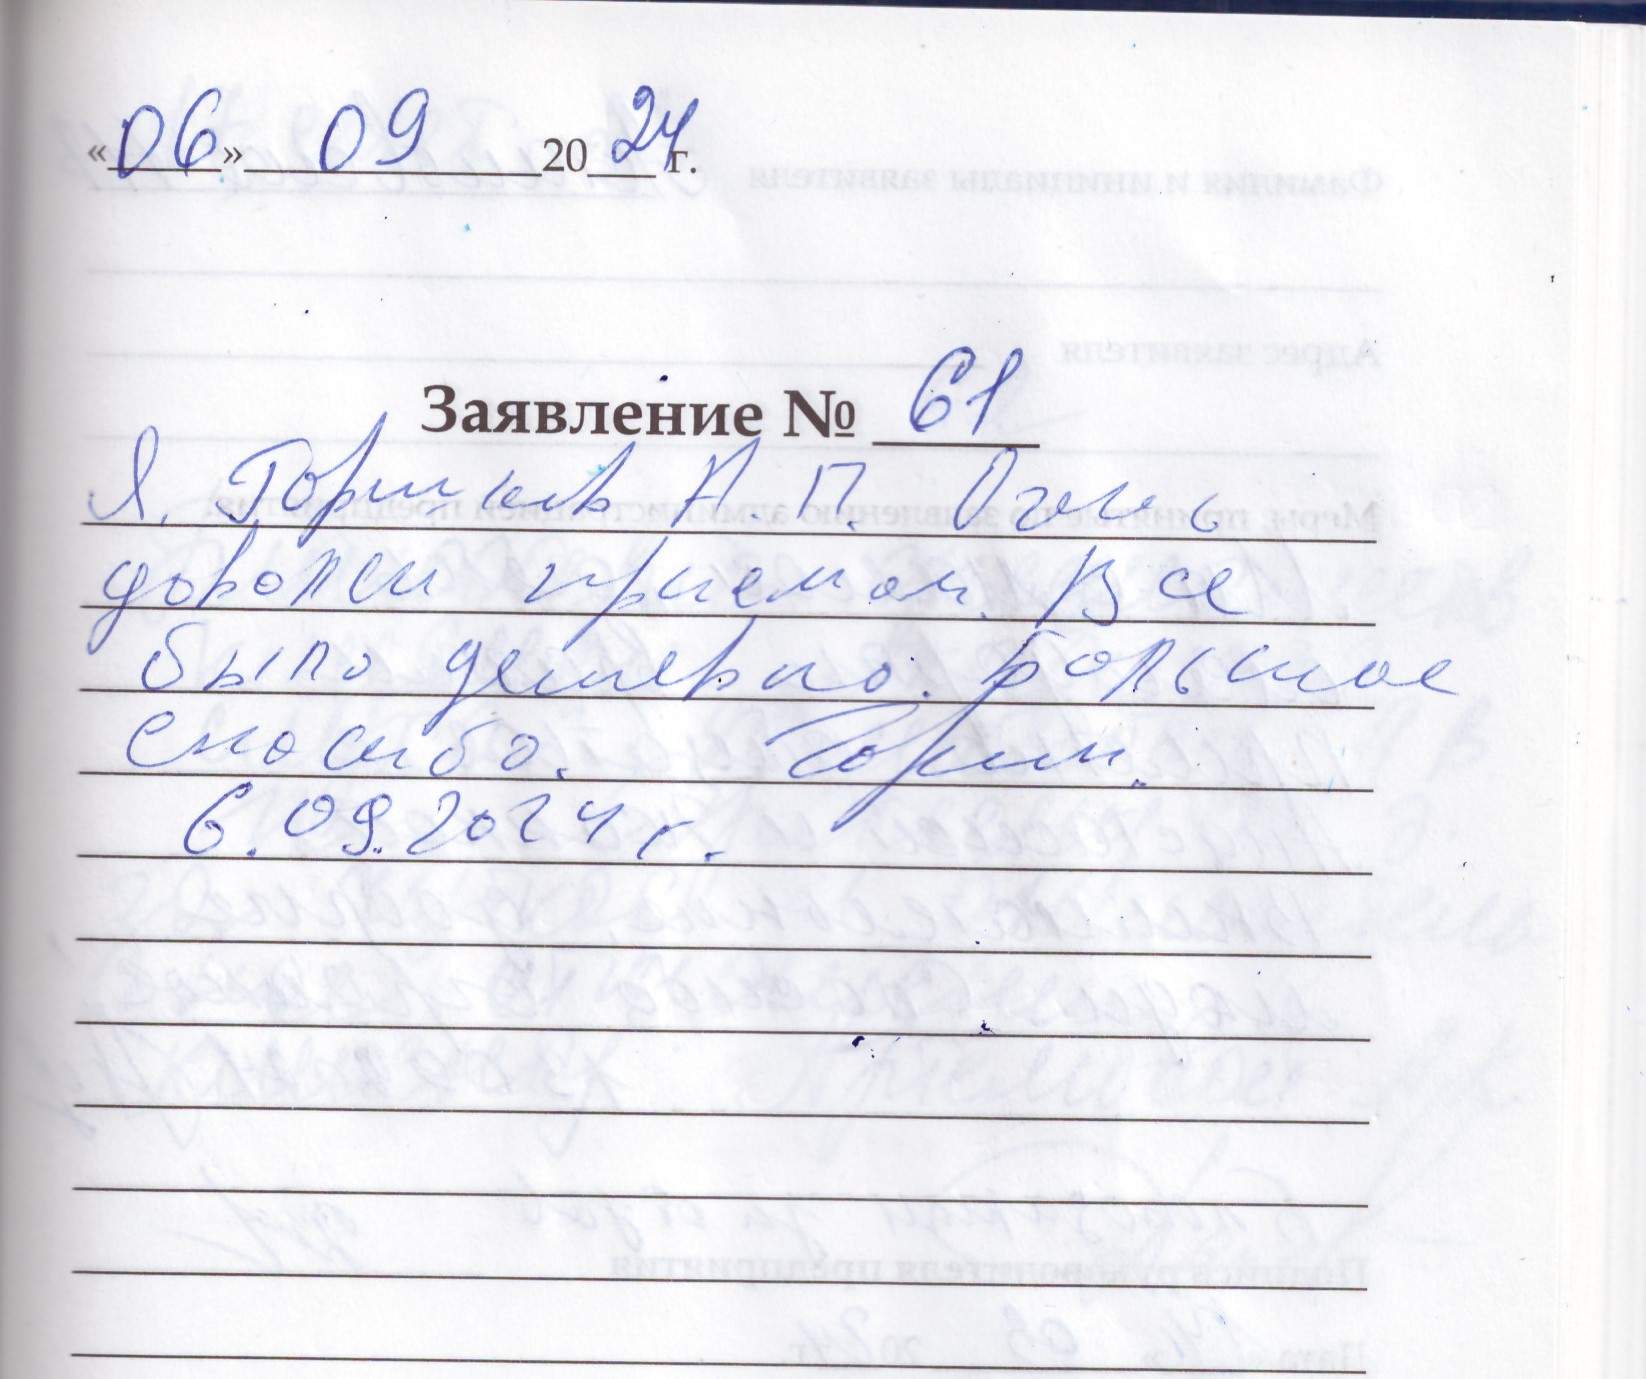 «06» 09 2024 г.
Заявление № 61
Я, Горшков А. П. Очень
доволен приемом. Все
было душевно. Большое
спасибо.
6.09.2024 г.